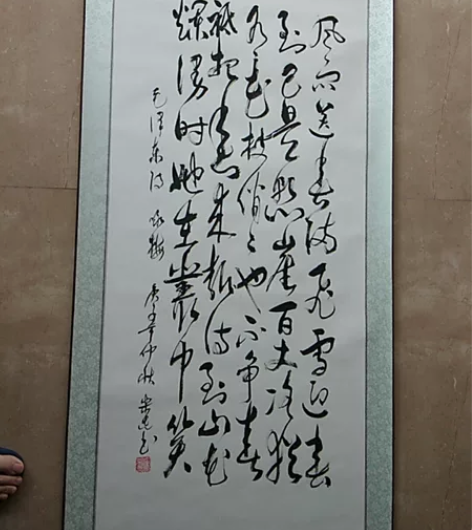 风雨送春归飞雪迎春
到已是悬崖百丈冰犹
有花枝俏〻也不争春
祗把春来报待到山花
爛漫时她在叢中笑
毛泽东 咏梅 仲秋 书